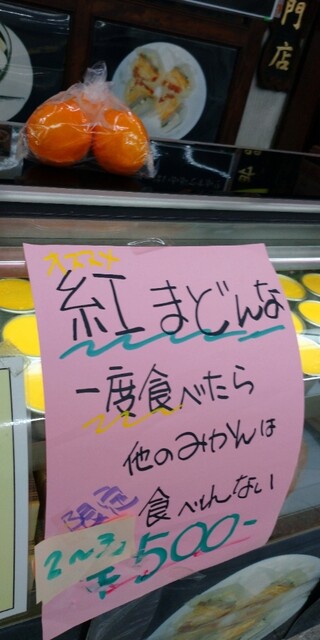 門店
オススメ
紅まどんな
一度食べたら
他のみかんは
食べれんない
限定
2〜3コ
500-